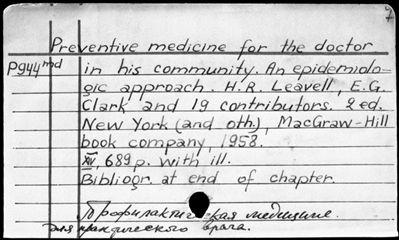 Preventive medicine for the doctor
P944md in his community. An epidemiolo-
gic approach. H.R. Leavell, E.G.
Clark and 19 contributors. 2 ed.
New York (and oth.), MacGraw-Hill
book company, 1958.
XIV, 689 p. with ill.
Bibliogr. at end of chapter.
Профилактическая медицина
для практического врача.